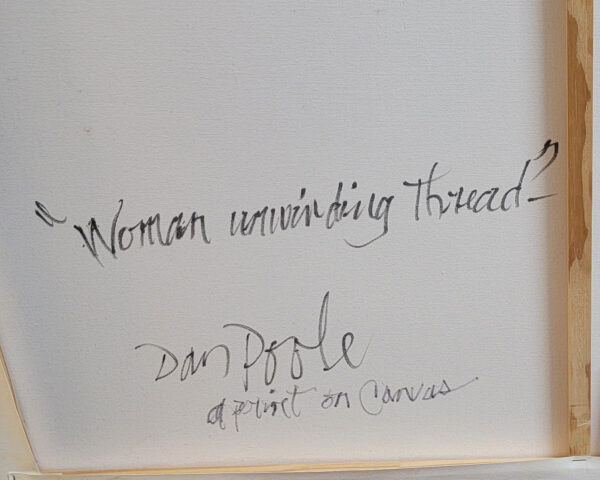 "Woman unwinding Thread"
Dan Poole
a print on Canvas